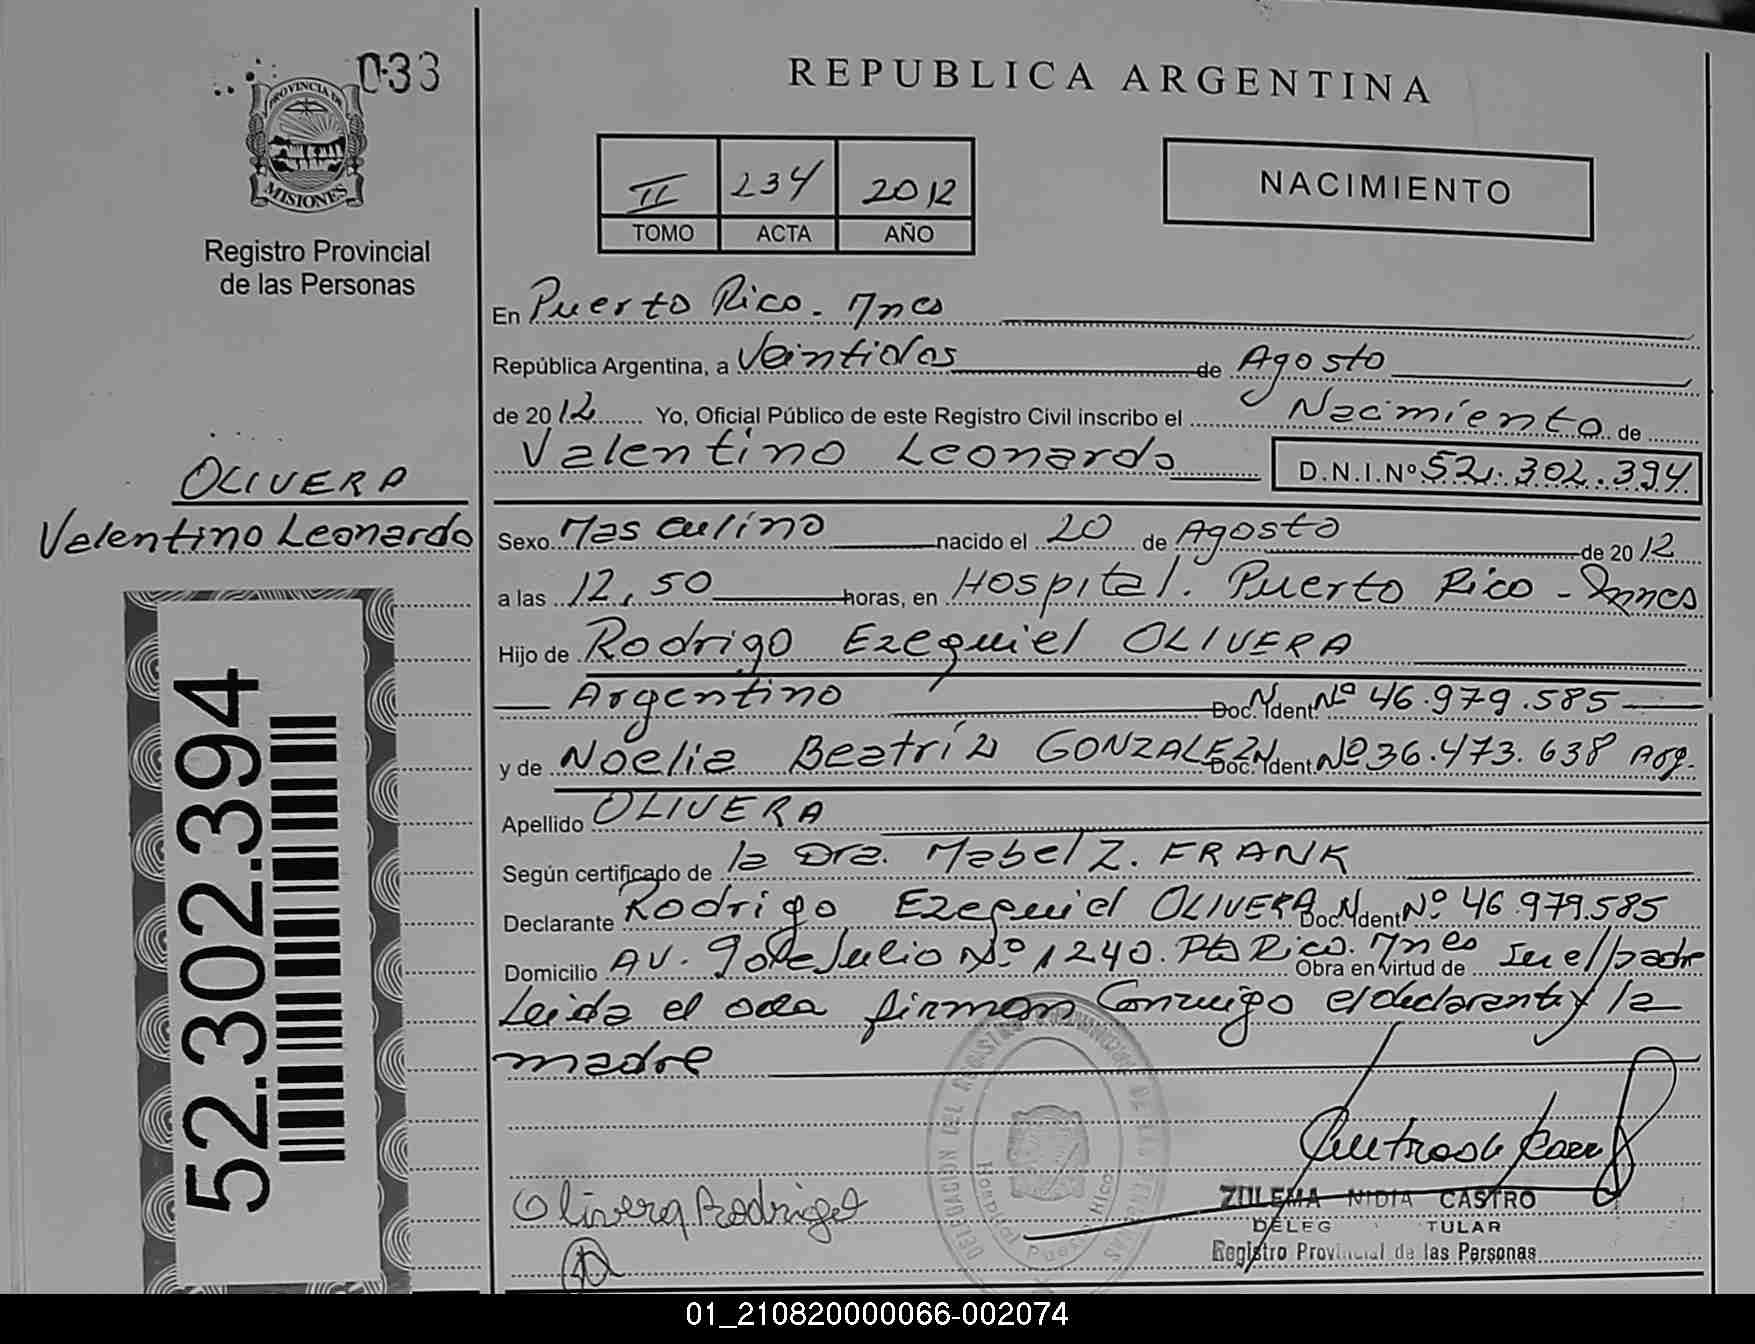 033
PROVINCIA DE
MISIONES
Registro Provincial
de las Personas
REPUBLICA ARGENTINA
II 234 2012
TOMO ACTA AÑO
NACIMIENTO
En Puerto Rico. Mnes
República Argentina, a Veintidos de Agosto
de 2012 Yo, Oficial Público de este Registro Civil inscribo el Nacimiento de
Valentino Leonardo D.N.I.Nº 52.302.394
OLIVERA
Valentino Leonardo
Sexo Masculino nacido el 20 de Agosto de 2012
a las 12,50 horas, en Hospital. Puerto Rico - Mnes
Hijo de Rodrigo Ezequiel OLIVERA
Argentino Doc. Ident. Nº 46.979.585
y de Noelia Beatríz GONZALEZ Doc. Ident. Nº 36.473.638 Arg.
Apellido OLIVERA
Según certificado de la Dra. Mabel Z. FRANK
Declarante Rodrigo Ezequiel OLIVERA Doc. Ident Nº 46.979.585
Domicilio AV. 9 de Julio Nº 1240. Pto Rico. Mnes Obra en virtud de Ser el padre
Leida el acta firman Conmigo el declarante y la
madre
52.302.394
Olivera Rodrigo
Hospital Puerto Rico
ZULEMA NIDIA CASTRO
DELEG TULAR
Registro Provincial de las Personas
01_210820000066-002074